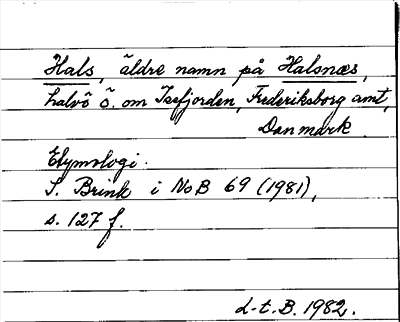 Hals, äldre namn på Halsnæs,
halvö ö. om Isefjorden, Frederiksborg amt,
Danmark.
Etymologi.
S. Brink i NoB 69 (1981),
s. 127 f.
d-t. B. 1982.